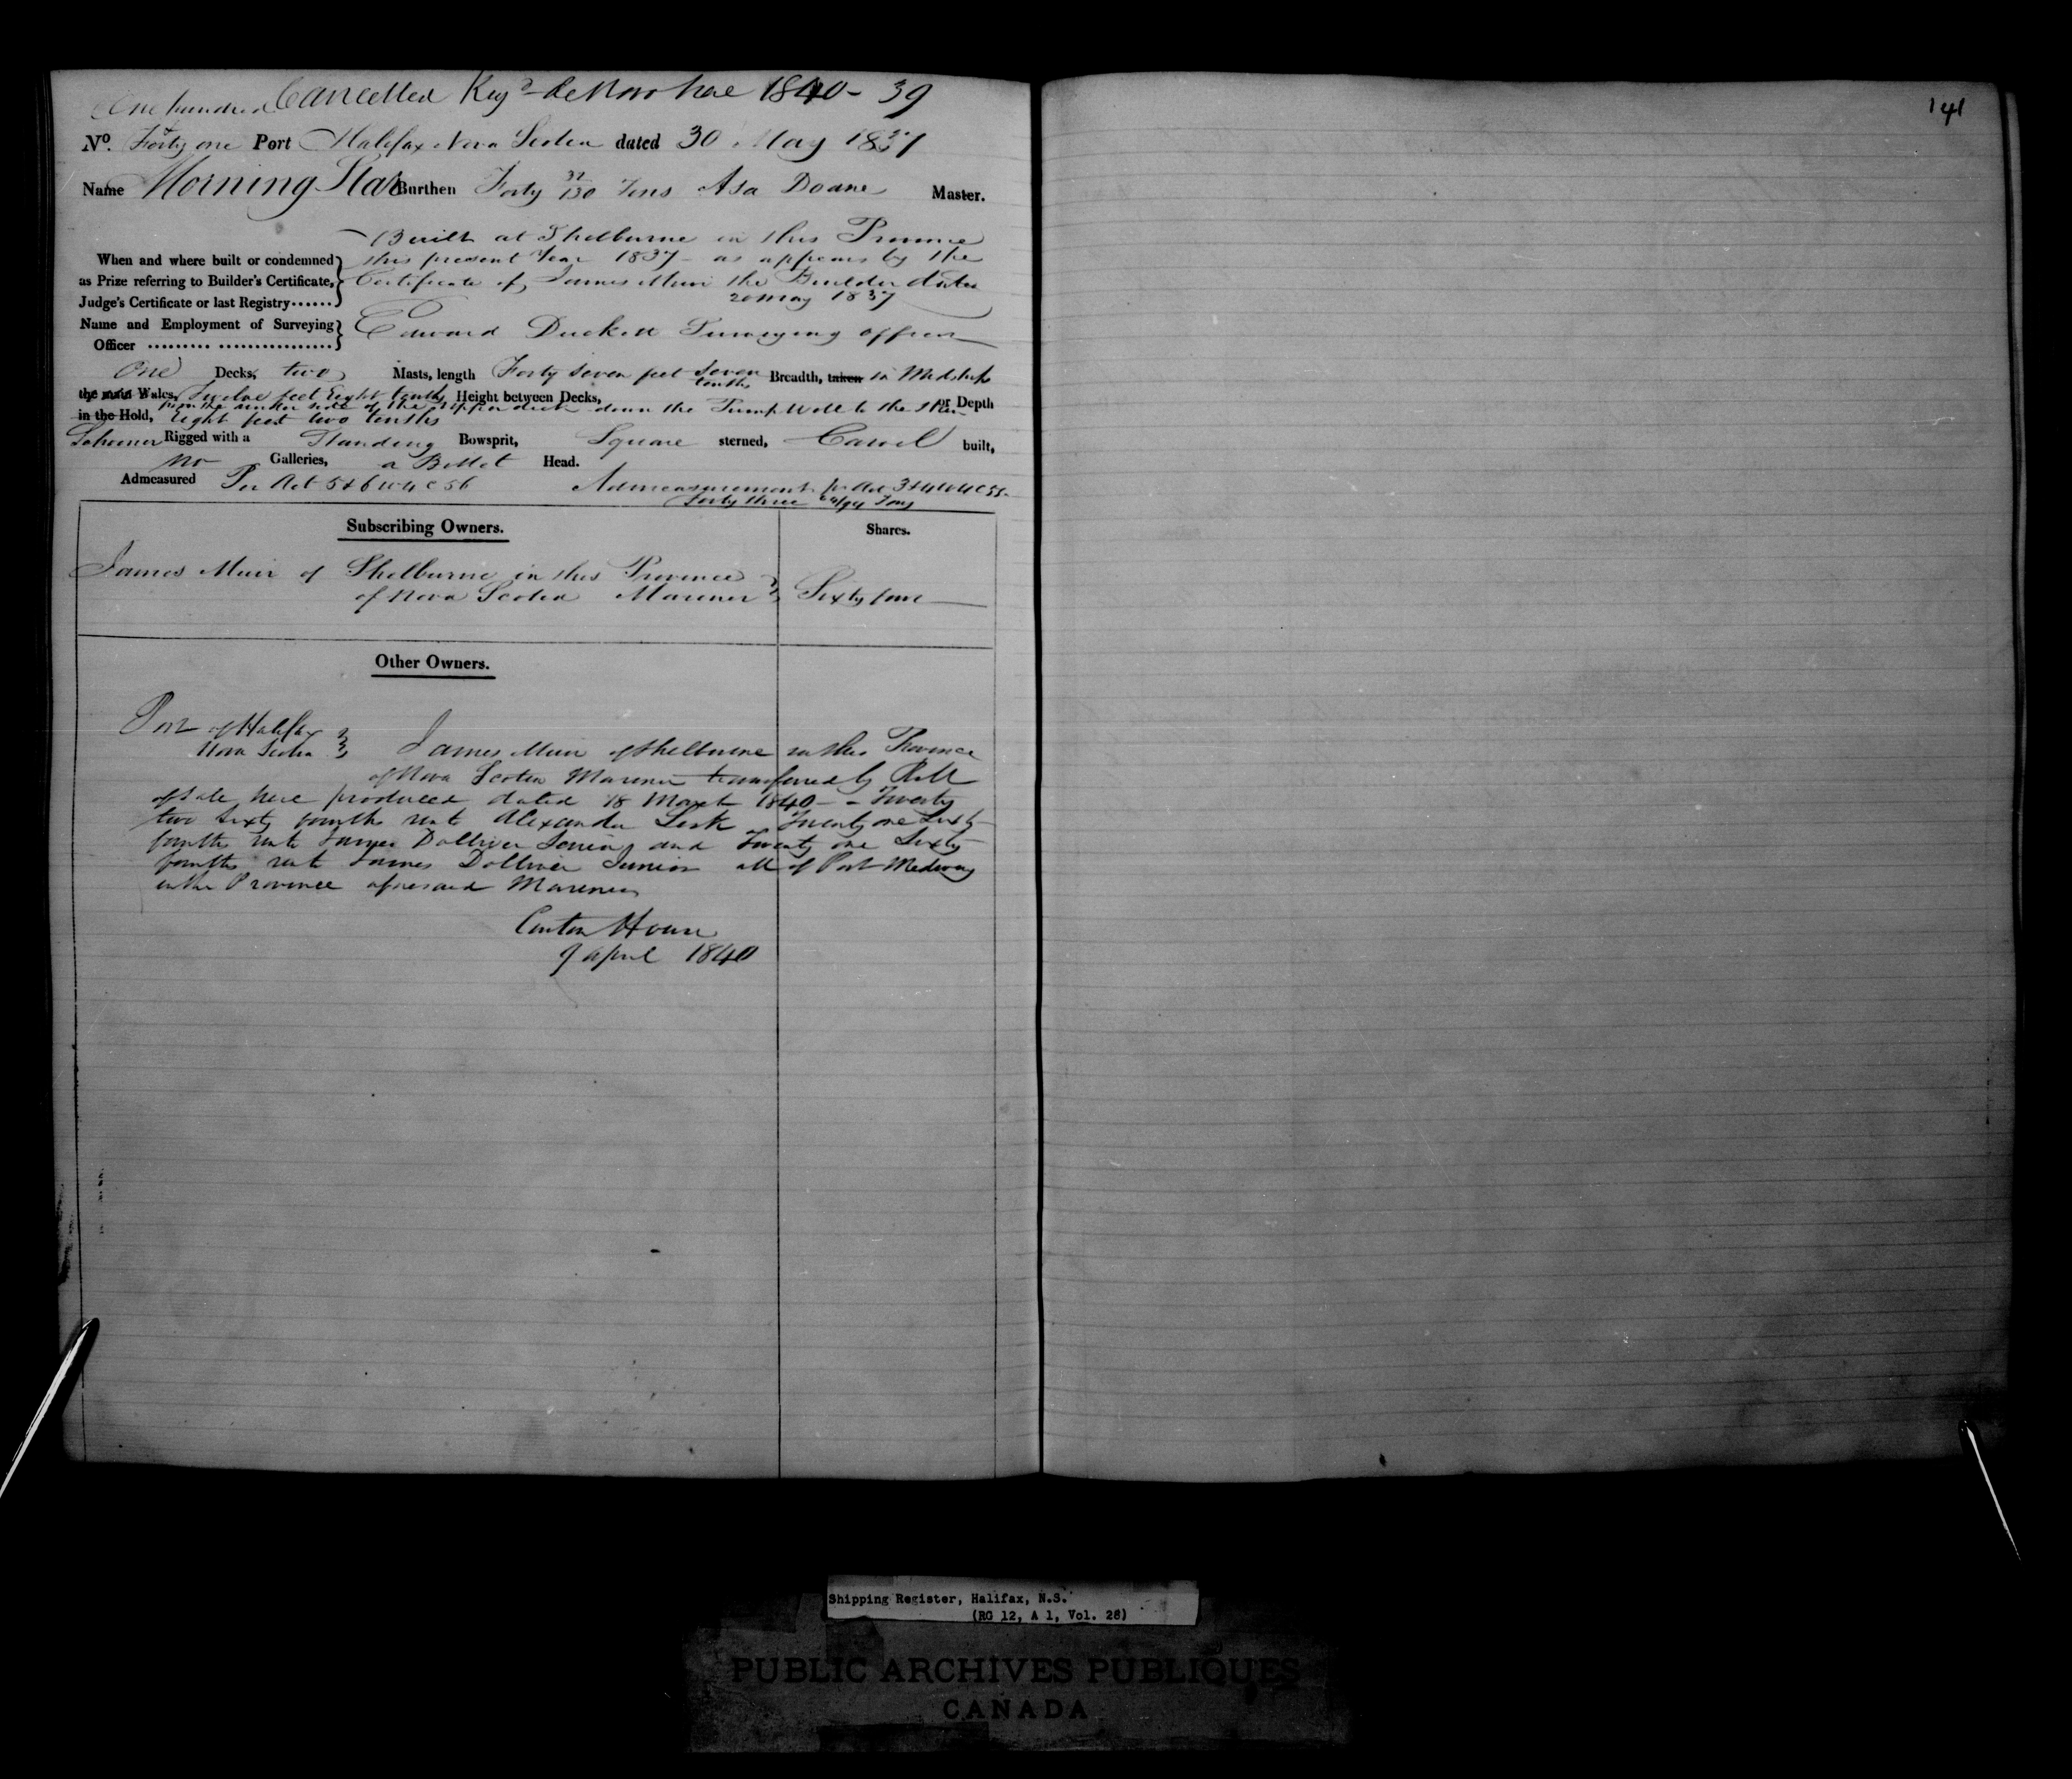 Cancelled Reg'd de Novo here 1840 - 39
One hundred &
No. Forty one Port Halifax Nova Scotia dated 30 May 1837
Name Morning Star Burthen Forty 32/130 Tons Asa Doane Master.
Built at Shelburne in this Province
When and where built or condemned this present Year 1837 - as appears by the
as Prize referring to Builder's Certificate, Certificate of James Muir the Builder dated
Judge's Certificate or last Registry...... 20 May 1837
Name and Employment of Surveying Edward Duckett Surveying officer
Officer
One Decks, two Masts, length Forty seven feet seven tenths Breadth, taken in Midships
the main Wales, Twelve feet Eight tenths Height between Decks,
from the under side of the upper deck down the Pump Well to the Skin or Depth
in the Hold, Eight feet two tenths
Schooner Rigged with a Standing Bowsprit, Square sterned, Carvel built,
no Galleries, a Billet Head.
Admeasured Per Act 5 & 6 W 4 C 56 Admeasurement pr Act 3 & 4 W 4 C 55
Forty three /94 Tons
Subscribing Owners. Shares.
James Muir of Shelburne in this Province
of Nova Scotia Mariner Sixty four
Other Owners.
Port of Halifax
Nova Scotia James Muir of Shelburne in this Province
of Nova Scotia Mariner transferred by Bill
of Sale here produced dated 18 March 1840 - - Twenty
two Sixty fourths unto Alexander Lesk Twenty one Sixty
fourths unto James Dolliver Senior and Twenty one Sixty
fourths unto James Dolliver Junior all of Port Medway
in the Province aforesaid Mariners
Custom House
9 April 1840
141
Shipping Register, Halifax, N.S.
(RG 12, A 1, Vol. 28)
PUBLIC ARCHIVES PUBLIQUES
CANADA